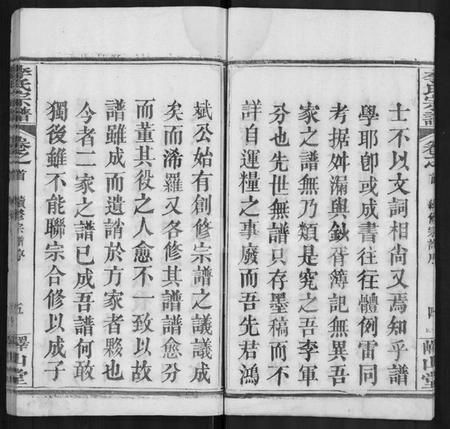 士不以文詞相尚又焉知乎譜
學耶卽或成書往往體例雷同
考据舛漏與鈔胥簿記無異吾
家之譜無乃類是究之吾李軍
分也先世無譜只存墨稿而不
詳自運糧之事廢而吾先君鴻
李氏宗譜
卷之首
斌公始有創修宗譜之議議成
矣而浠羅又各修其譜譜愈分
而董其役之人愈不一致以故
譜雖成而遺誚於方家者夥也
今者二家之譜已成吾譜何敢
獨後雖不能聯宗合修以成子
李氏宗譜
卷之首
續修宗譜序
五